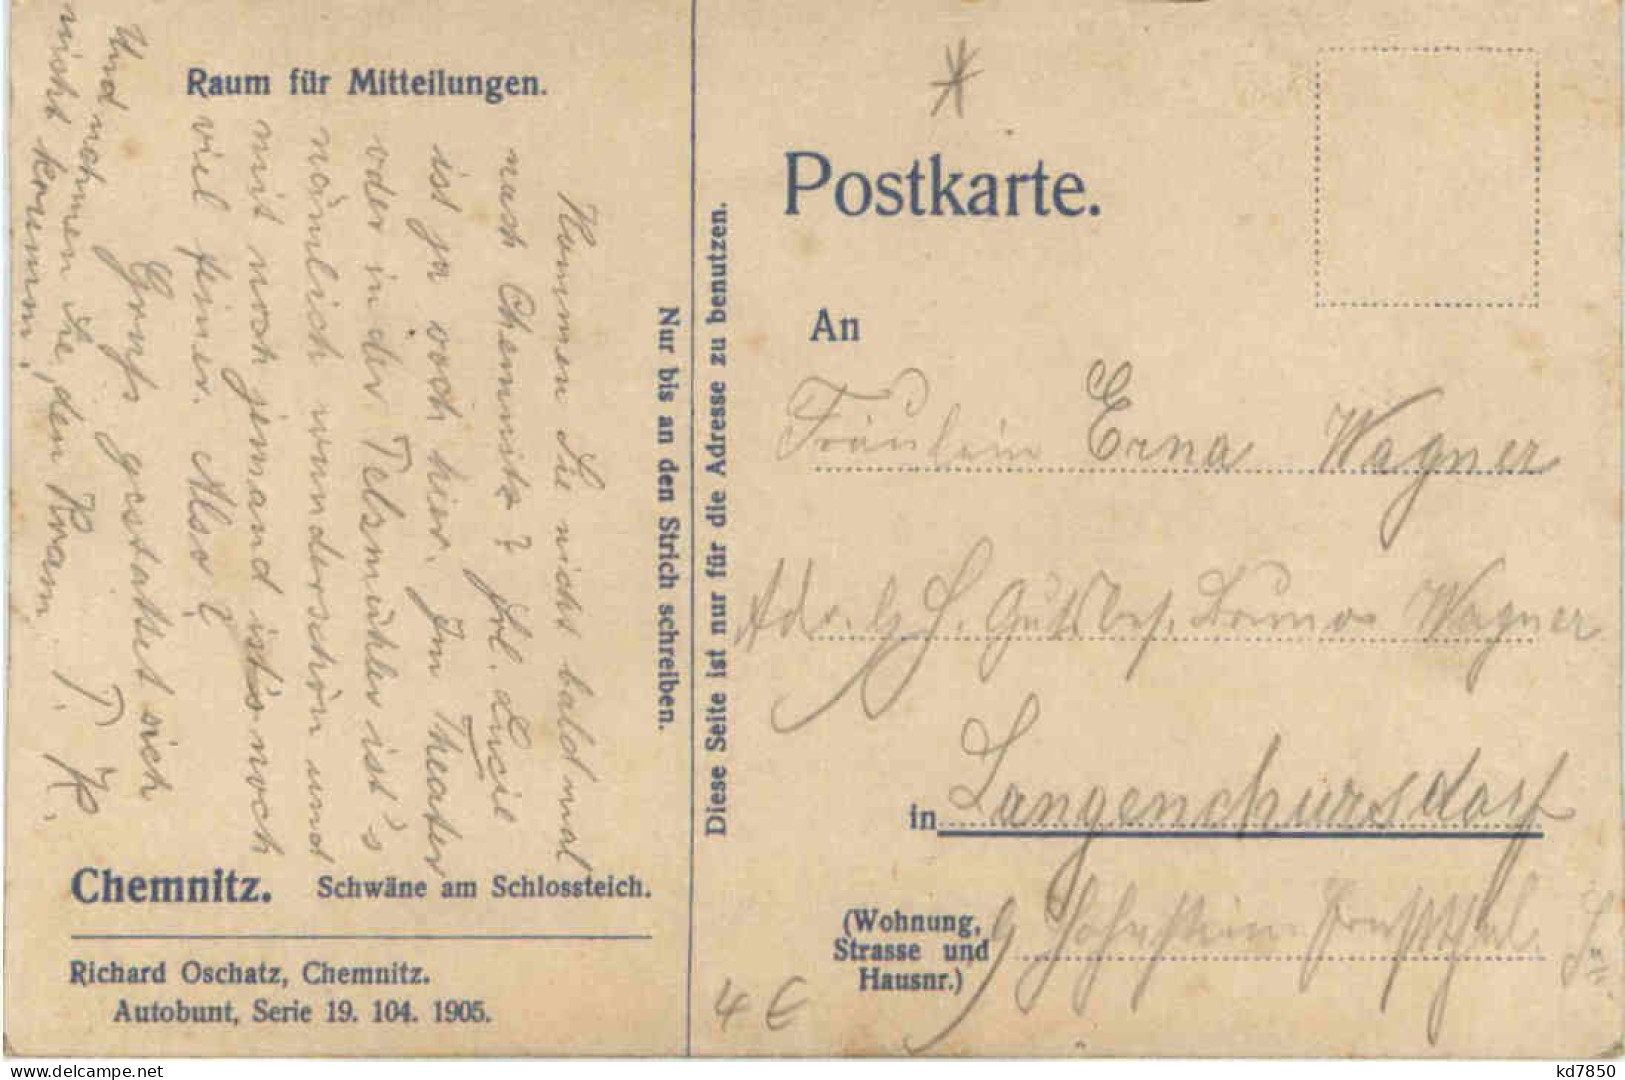 Raum für Mitteilungen.
Kommen Sie nicht bald mal
nach Chemnitz? Frl. Lucie
ist ja och hier. Im Theater
oder in der Pelsmühler ist's
nämlich wunderschön und
mit noch jemand ist's noch
viel feiner. Also?
Gruß gestattet sich
P. K.
Und nehmen Sie, den Kram
nicht krumm!
Chemnitz. Schwäne am Schlossteich.
Richard Oschatz, Chemnitz.
Autobunt, Serie 19. 104. 1905.
Nur bis an den Strich schreiben.
Diese Seite ist nur für die Adresse zu benutzen.
Postkarte.
An
Fräulein Erna Wagner
Adr. Gutsbes. Bruno Wagner
in Langenchursdorf
(Wohnung,
Strasse und
Hausnr.)
b/ Hohenstein-Ernstthal
4 €
delcampe.net
kd7850